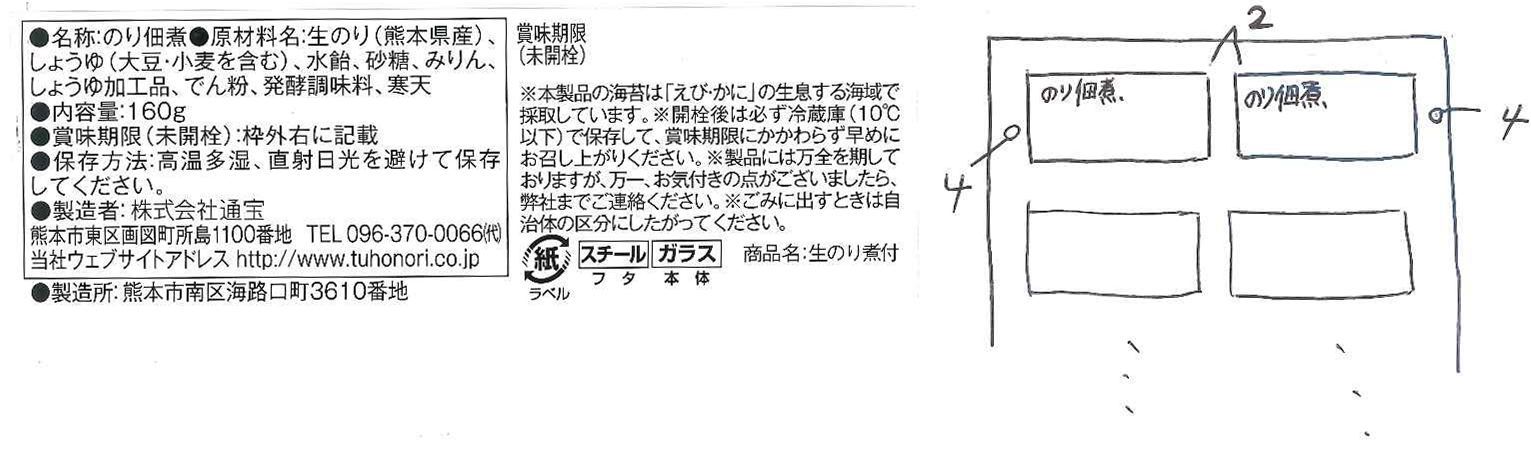 ●名称:のり佃煮●原材料名:生のり(熊本県産)、
しょうゆ(大豆・小麦を含む)、水飴、砂糖、みりん、
しょうゆ加工品、でん粉、発酵調味料、寒天
●内容量:160g
●賞味期限(未開栓):枠外右に記載
●保存方法:高温多湿、直射日光を避けて保存
してください。
●製造者:株式会社通宝
熊本市東区画図町所島1100番地 TEL 096-370-0066㈹
当社ウェブサイトアドレス http://www.tuhonori.co.jp
●製造所:熊本市南区海路口町3610番地
賞味期限
(未開栓)
※本製品の海苔は「えび・かに」の生息する海域で
採取しています。※開栓後は必ず冷蔵庫(10℃
以下)で保存して、賞味期限にかかわらず早めに
お召し上がりください。※製品には万全を期して
おりますが、万一、お気付きの点がございましたら、
弊社までご連絡ください。※ごみに出すときは自
治体の区分にしたがってください。
紙
ラベル
スチール
フタ
ガラス
本体
商品名:生のり煮付
2
のり佃煮
のり佃煮
4
4